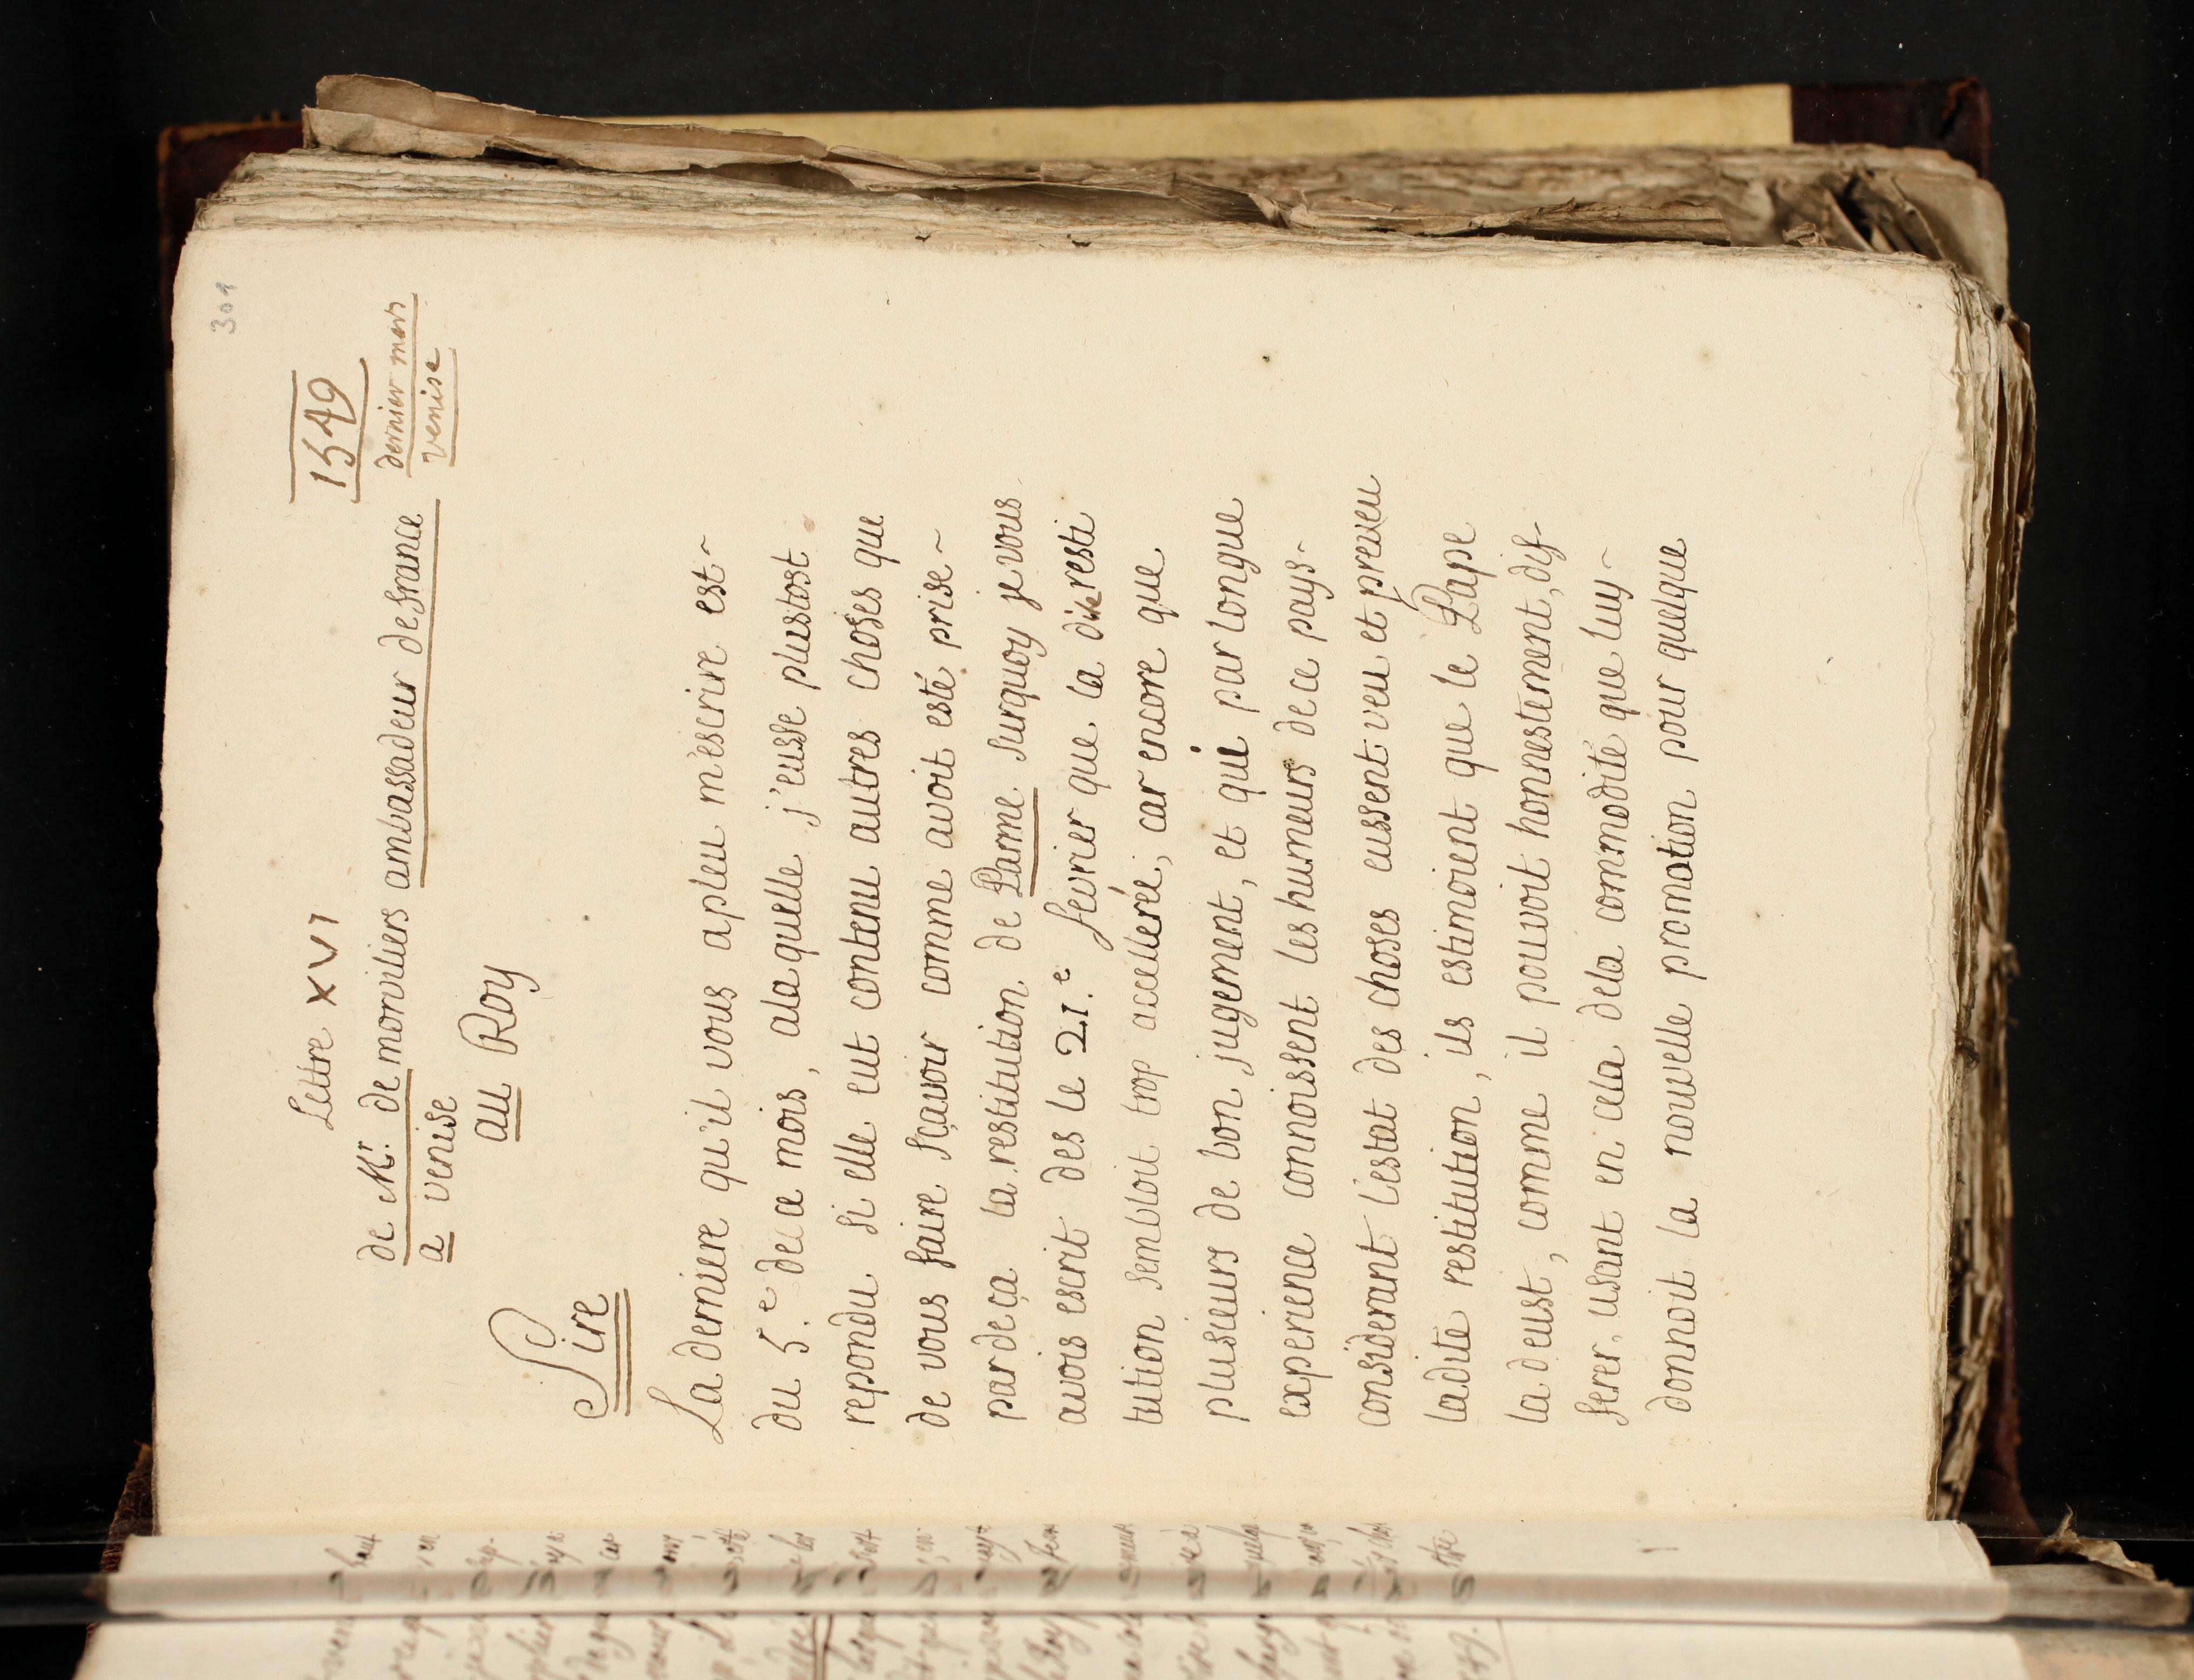 301
Lettre XVI
1549
de Mr. de morviliers ambassadeur de france
dernier mars
a venise
venise
au Roy
Sire
La derniere qu'il vous a pleu m'escrire est
du 5.e de ce mois, a laquelle j'eusse plustost
repondu si elle eut contenu autres choses que
de vous faire sçavoir comme avoit esté prise
par deça la restitution de Parme surquoy je vous
avois escrit des le 21.e fevrier que la dite resti
tution sembloit trop accellerée, car encore que
plusieurs de bon jugement, et qui par longue
experience connoissent les humeurs de ce pays
considerant l'estat des choses eussent veu et preveu
ladite restitution, ils estimoient que le Pape
la deust, comme il pouvoit honnestement, dif
ferer, usant en cela de la commodité que luy
donnoit la nouvelle promotion pour quelque